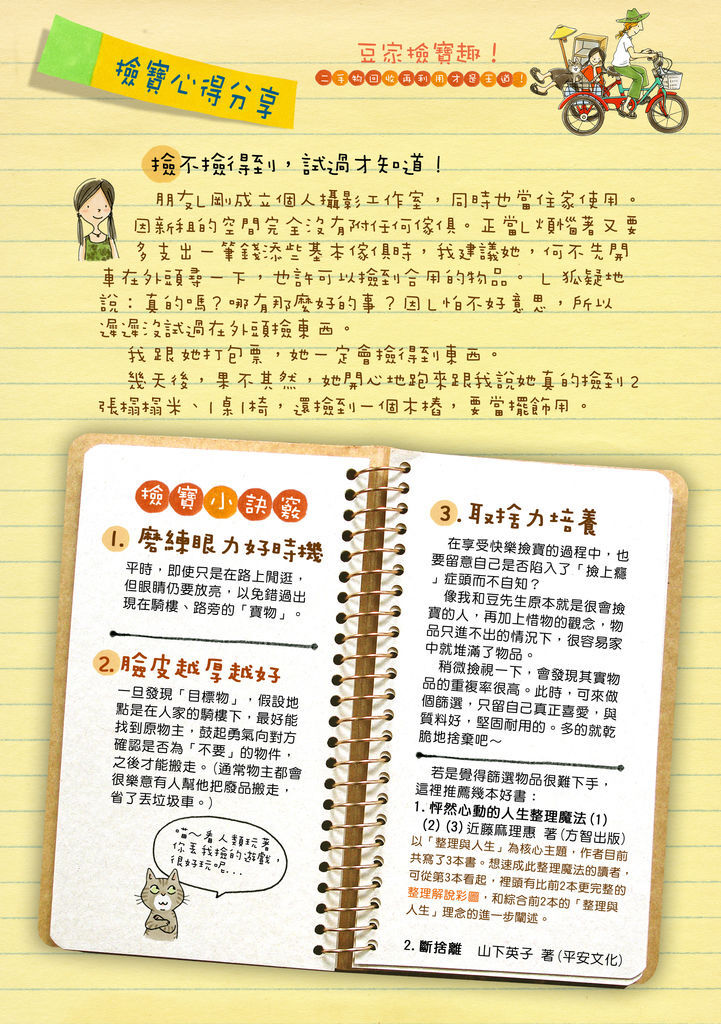 撿寶心得分享
豆家撿寶趣！
二手物回收再利用才是王道！
撿不撿得到，試過才知道！
朋友L剛成立個人攝影工作室，同時也當住家使用。
因新租的空間完全沒有附任何傢俱。正當L煩惱著又要
多支出一筆錢添些基本傢俱時，我建議她，何不先開
車在外頭尋一下，也許可以撿到合用的物品。L狐疑地
說：真的嗎？哪有那麼好的事？因L怕不好意思，所以
遲遲沒試過在外頭撿東西。
我跟她打包票，她一定會撿得到東西。
幾天後，果不其然，她開心地跑來跟我說她真的撿到2
張榻榻米、1桌1椅，還撿到一個木樁，要當擺飾用。
撿寶小訣竅
1. 磨練眼力好時機
平時，即使只是在路上閒逛，
但眼睛仍要放亮，以免錯過出
現在騎樓、路旁的「寶物」。
2. 臉皮越厚越好
一旦發現「目標物」，假設地
點是在人家的騎樓下，最好能
找到原物主，鼓起勇氣向對方
確認是否為「不要」的物件，
之後才能搬走。(通常物主都會
很樂意有人幫他把廢品搬走，
省了丟垃圾車。)
喵～看人類玩著
你丟我撿的遊戲，
很好玩呢...
3. 取捨力培養
在享受快樂撿寶的過程中，也
要留意自己是否陷入了「撿上癮
」症頭而不自知？
像我和豆先生原本就是很會撿
寶的人，再加上惜物的觀念，物
品只進不出的情況下，很容易家
中就堆滿了物品。
稍微檢視一下，會發現其實物
品的重複率很高。此時，可來做
個篩選，只留自己真正喜愛，與
質料好，堅固耐用的。多的就乾
脆地捨棄吧～
若是覺得篩選物品很難下手，
這裡推薦幾本好書：
1. 怦然心動的人生整理魔法(1)
(2) (3) 近藤麻理惠 著(方智出版)
以「整理與人生」為核心主題，作者目前
共寫了3本書。想速成此整理魔法的讀者，
可從第3本看起，裡頭有比前2本更完整的
整理解說彩圖，和綜合前2本的「整理與
人生」理念的進一步闡述。
2. 斷捨離 山下英子 著(平安文化)